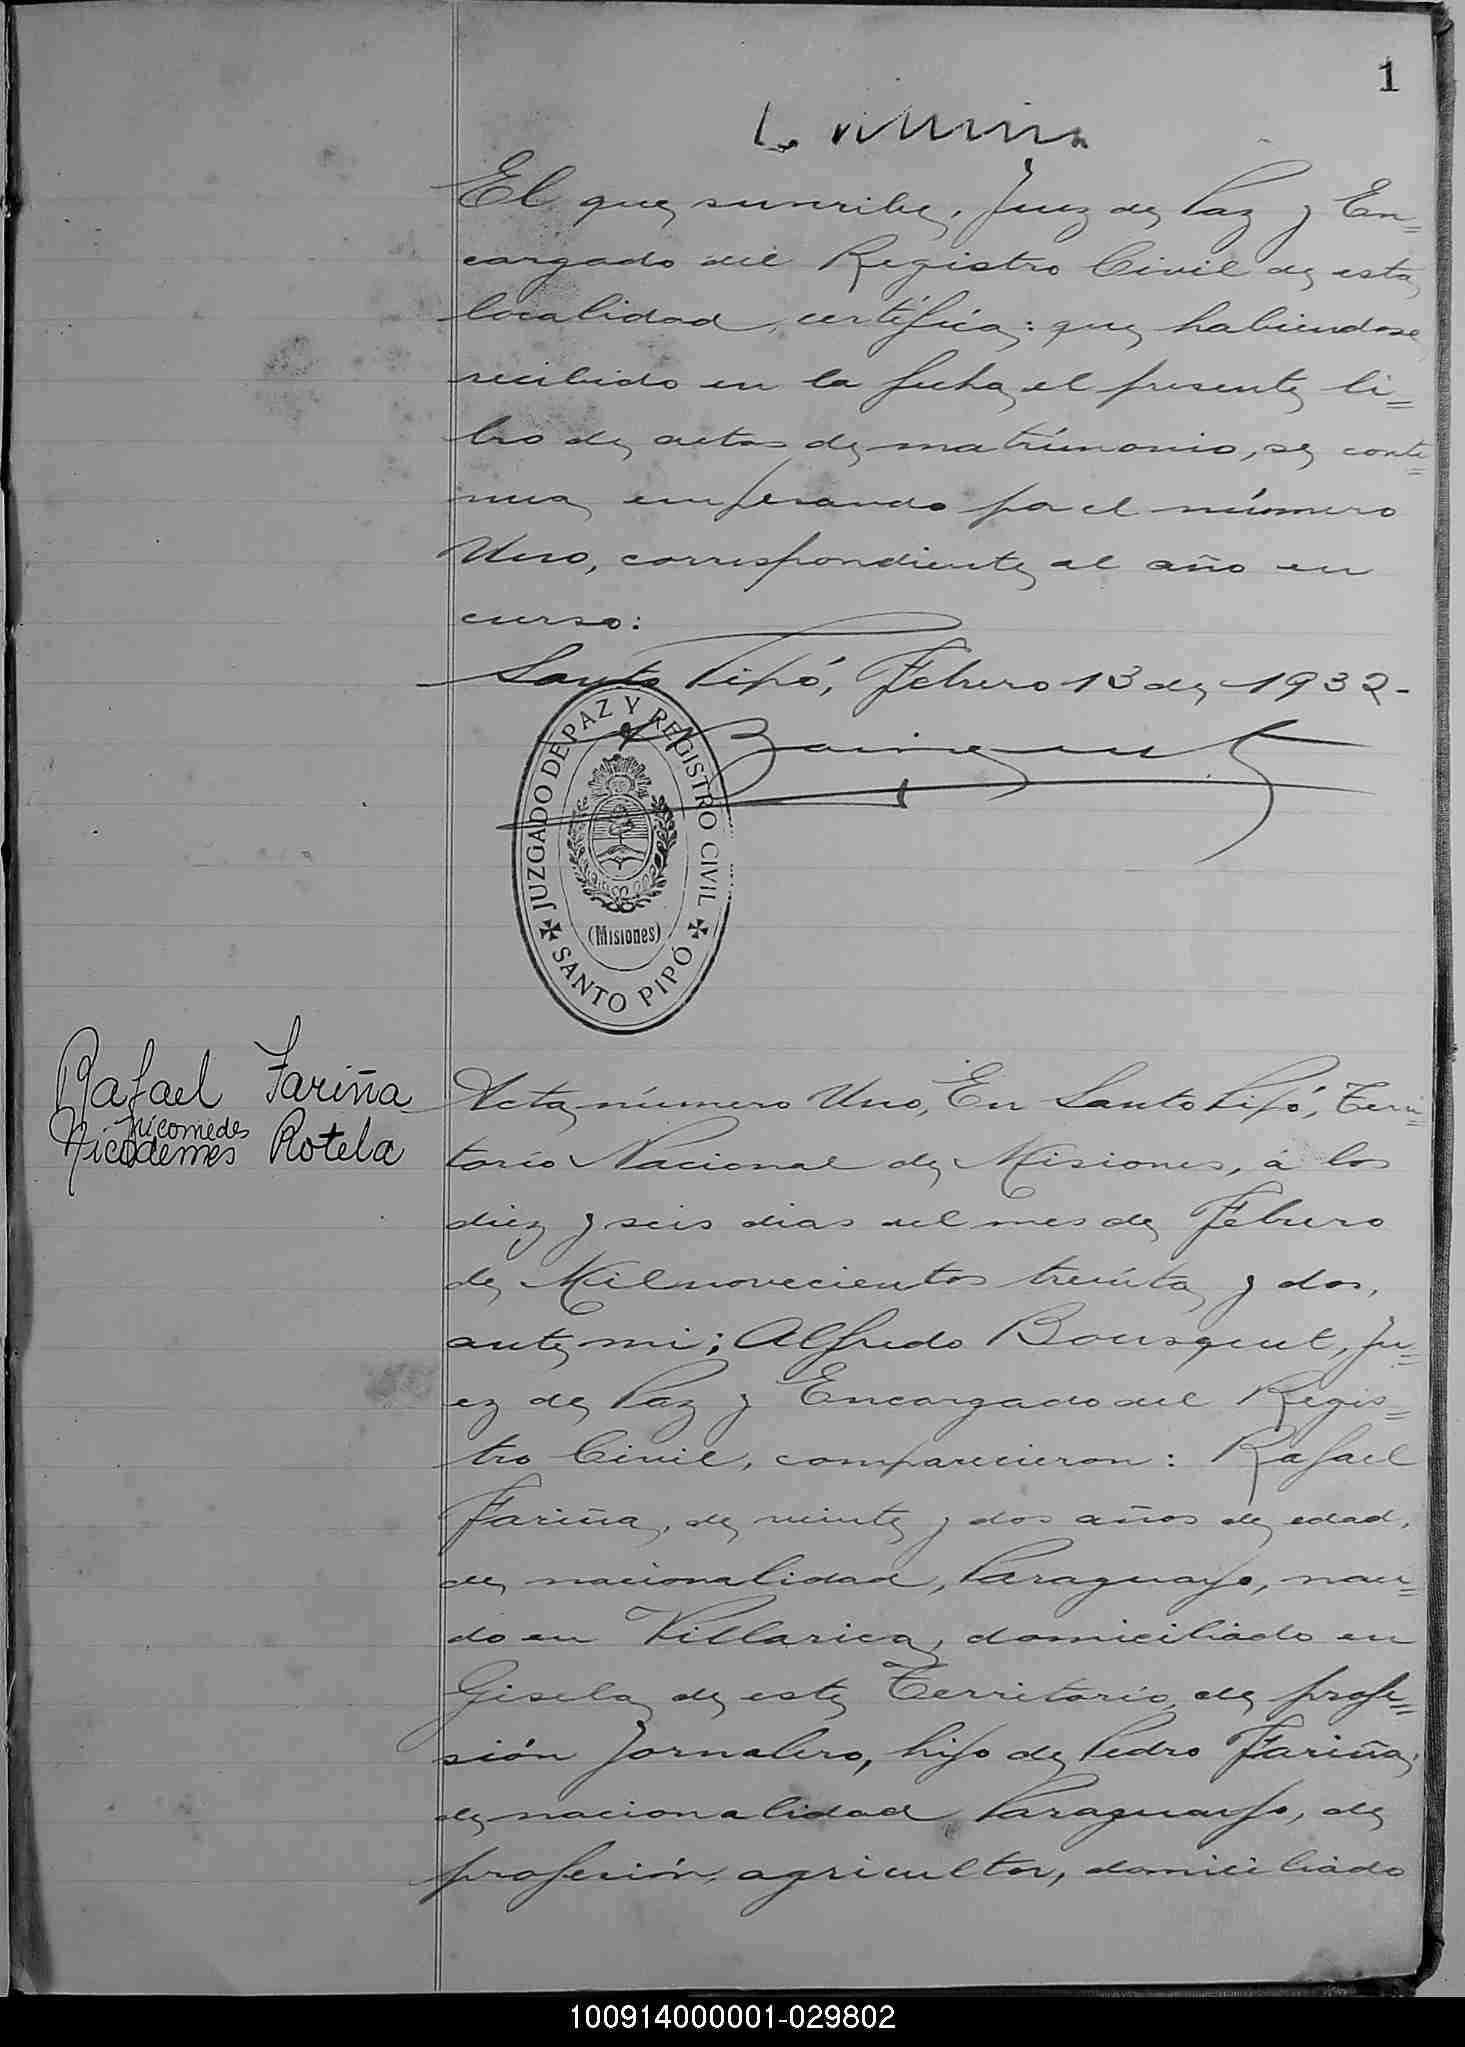 1
El que suscribe, Juez de Paz y En=
cargado del Registro Civil de esta
localidad, certifica: que habiendose
recibido en la fecha el presente li=
bro de actas de matrimonio, se conti=
nua empesando por el número
Uno, correspondiente al año en
curso:
Santo Pipó, Febrero 13 de 1932-
JUZGADO DE PAZ Y REGISTRO CIVIL
(Misiones)
SANTO PIPÓ
Rafael Fariña
Nicomedes
Nicodemes Rotela
Acta número Uno, En Santo Pipó, Terri=
torio Nacional de Misiones, á los
diez y seis dias del mes de Febrero
de Mil novecientos treinta y dos,
ante mi; Alfredo Bousquet, Ju=
ez de Paz y Encargado del Regis=
tro Civil, comparecieron: Rafael
Fariña, de veinte y dos años de edad,
de nacionalidad, Paraguayo, naci=
do en Villarica, domiciliado en
Gisela de este Territorio, de profe=
sión Jornalero, hijo de Pedro Fariña,
de nacionalidad Paraguayo, de
profesión, agricultor, domiciliado
100914000001-029802